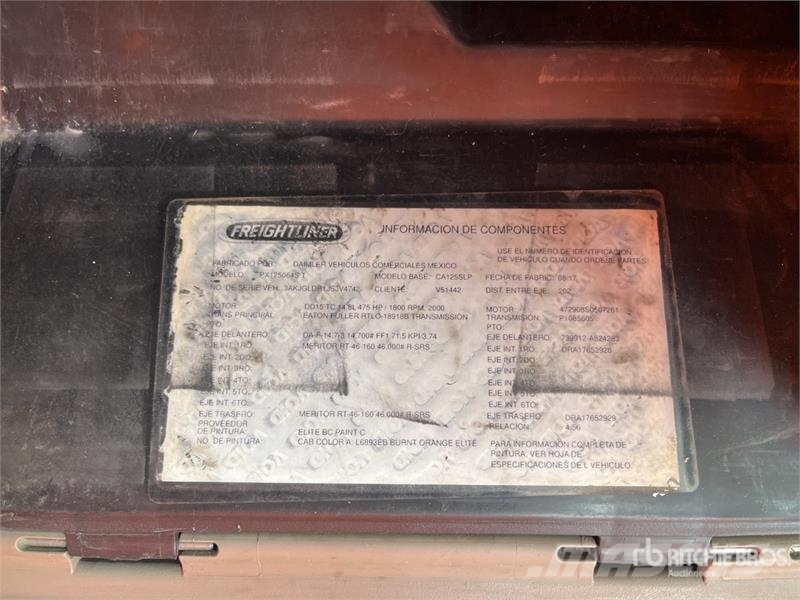 FREIGHTLINER
INFORMACION DE COMPONENTES
USE EL NUMERO DE IDENTIFICACION
DE VEHICULO CUANDO ORDENE PARTES.
FABRICADO POR: DAIMLER VEHICULOS COMERCIALES MEXICO
MODELO: PX125064S T MODELO BASE: CA125SLP FECHA DE FABRIC: 08/17
NO. DE SERIE VEH. CLIENTE: V51442 DIST. ENTRE EJE: 202
MOTOR: DD15 TC 14.8L 475 HP / 1800 RPM, 2000 MOTOR: 472908S0507261
TRANS PRINCIPAL EATON FULLER RTLO-18918B TRANSMISSION TRANSMISION: P1085605
PTO: PTO:
EJE DELANTERO: DA-F-14.7-3 14,700# FF1 71.5 KPI/3.74 EJE DELANTERO: 739312-A824283
EJE INT. 1RO: MERITOR RT-46-160 46,000# R-SRS EJE INT. 1RO: DRA17652928
EJE INT. 2DO: EJE INT. 2DO:
EJE INT. 3RO: EJE INT. 3RO:
EJE INT. 4TO: EJE INT. 4TO:
EJE INT. 5TO: EJE INT. 5TO:
EJE INT. 6TO: EJE INT. 6TO:
EJE TRASERO: MERITOR RT-46-160 46,000# R-SRS EJE TRASERO: DRA17652929
PROVEEDOR RELACION: 4.56
DE PINTURA: ELITE BC PAINT C
NO. DE PINTURA CAB COLOR A: L6893EB BURNT ORANGE ELITE
PARA INFORMACION COMPLETA DE
PINTURA, VER HOJA DE
ESPECIFICACIONES DE L VEHICULO.
MASCUS
rb RITCHIE BROS.
Auctioneers